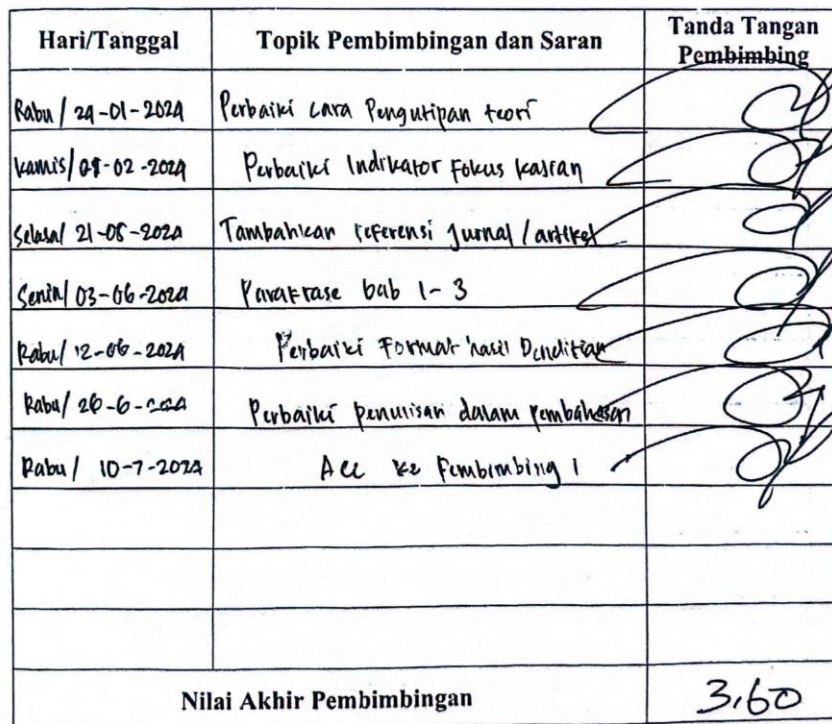 Hari/Tanggal Topik Pembimbingan dan Saran Tanda Tangan
Pembimbing
Rabu / 24-01-2024 Perbaiki cara Pengutipan teori
Kamis / -02-2024 Perbaiki Indikator Fokus Kajian
Selasa / 21-05-2024 Tambahkan referensi Jurnal / artikel
Senin / 03-06-2024 Parafrase bab 1-3
Rabu / 12-06-2024 Perbaiki Format hasil Penelitian
Rabu / 26-6-2024 Perbaiki penulisan dalam pembahasan
Rabu / 10-7-2024 Acc ke Pembimbing 1
Nilai Akhir Pembimbingan 3,60